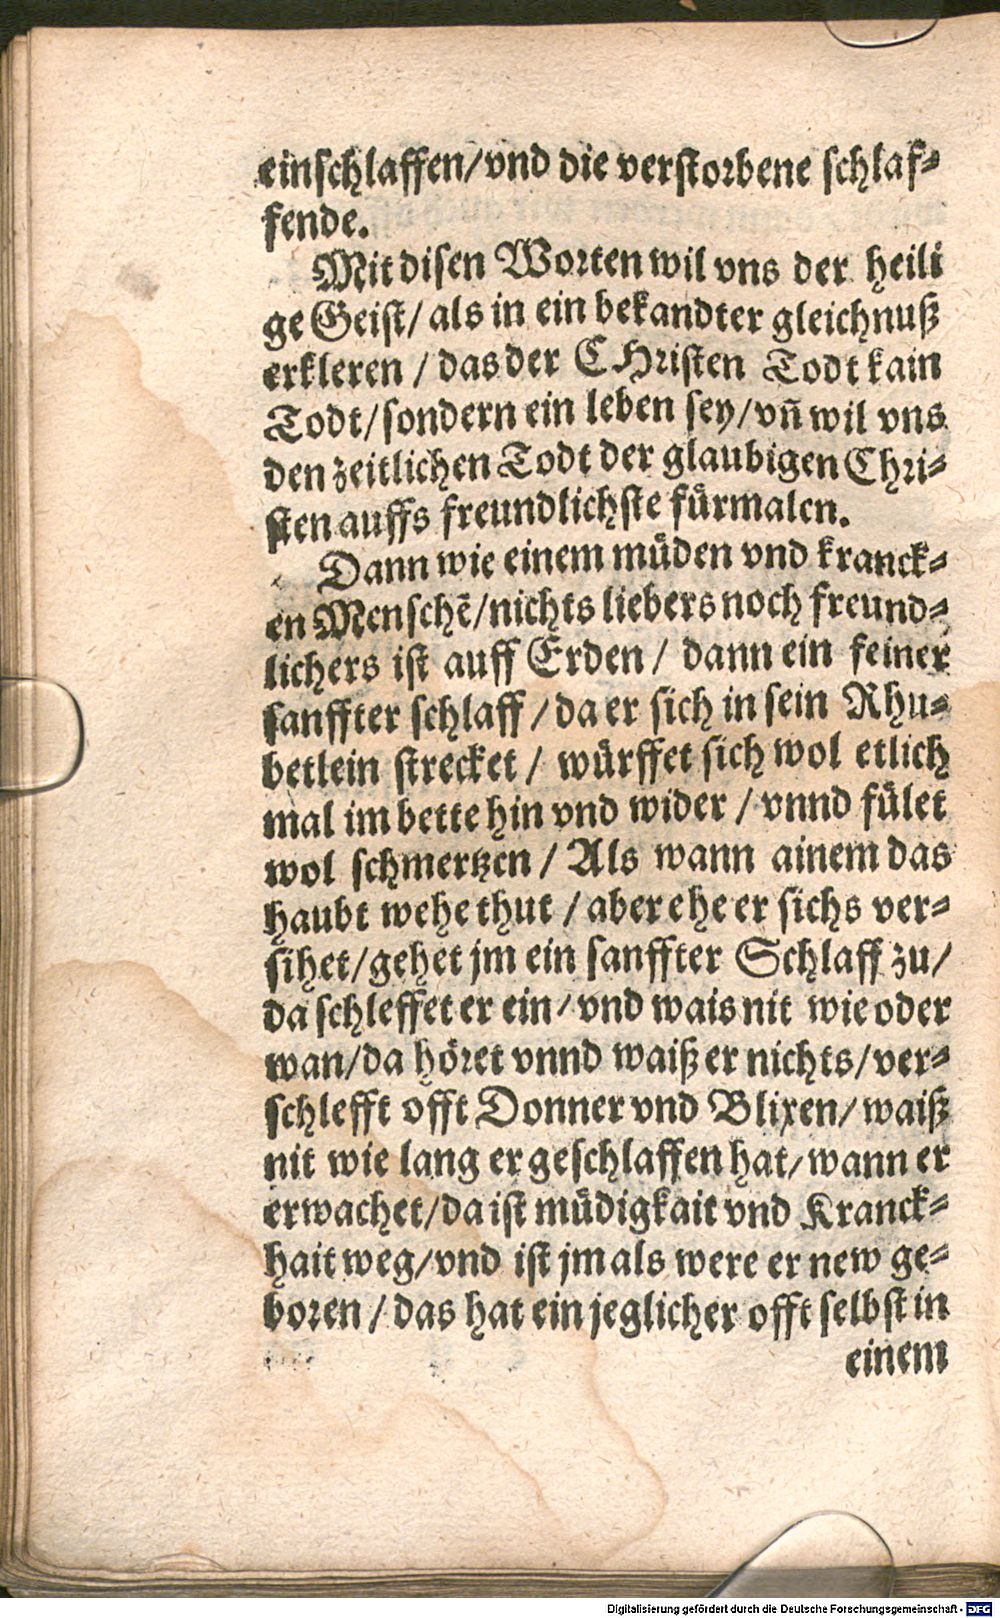 einschlaffen/vnd die verstorbene schlaf-
fende.
Mit disen Worten wil vns der heili
ge Geist/ als in ein bekandter gleichnuß
erkleren / das der CHristen Todt kain
Todt/sondern ein leben sey/vn̄ wil vns
den zeitlichen Todt der glaubigen Chri-
sten auffs freundlichste fuͤrmalen.
Dann wie einem muͤden vnd kranck-
en Menschē/nichts liebers noch freund-
lichers ist auff Erden / dann ein feiner
sanffter schlaff / da er sich in sein Rhu-
betlein strecket / wuͤrffet sich wol etlich
mal im bette hin vnd wider / vnnd fuͤlet
wol schmertzen / Als wann ainem das
haubt wehe thut / aber ehe er sichs ver-
sihet/gehet jm ein sanffter Schlaff zu/
da schleffet er ein/ vnd wais nit wie oder
wan/da hoͤret vnnd waiß er nichts/ver-
schlefft offt Donner vnd Blixen/ waiß
nit wie lang er geschlaffen hat/ wann er
erwachet/da ist muͤdigkait vnd Kranck-
hait weg/vnd ist jm als were er new ge-
boren / das hat ein jeglicher offt selbst in
einem
Digitalisierung gefördert durch die Deutsche Forschungsgemeinschaft - DFG